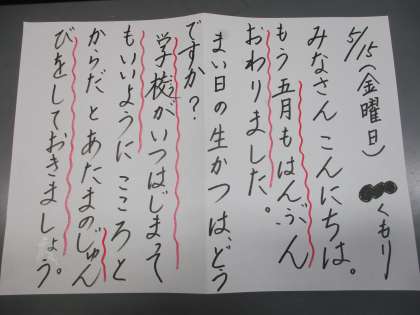 5/15(金曜日) くもり
みなさんこんにちは。
もう五月もはんぶん
おわりました。
まい日の生かつは、どう
ですか?
学校がいつはじまって
もいいように こころと
からだとあたまのじゅん
びをしておきましょう。